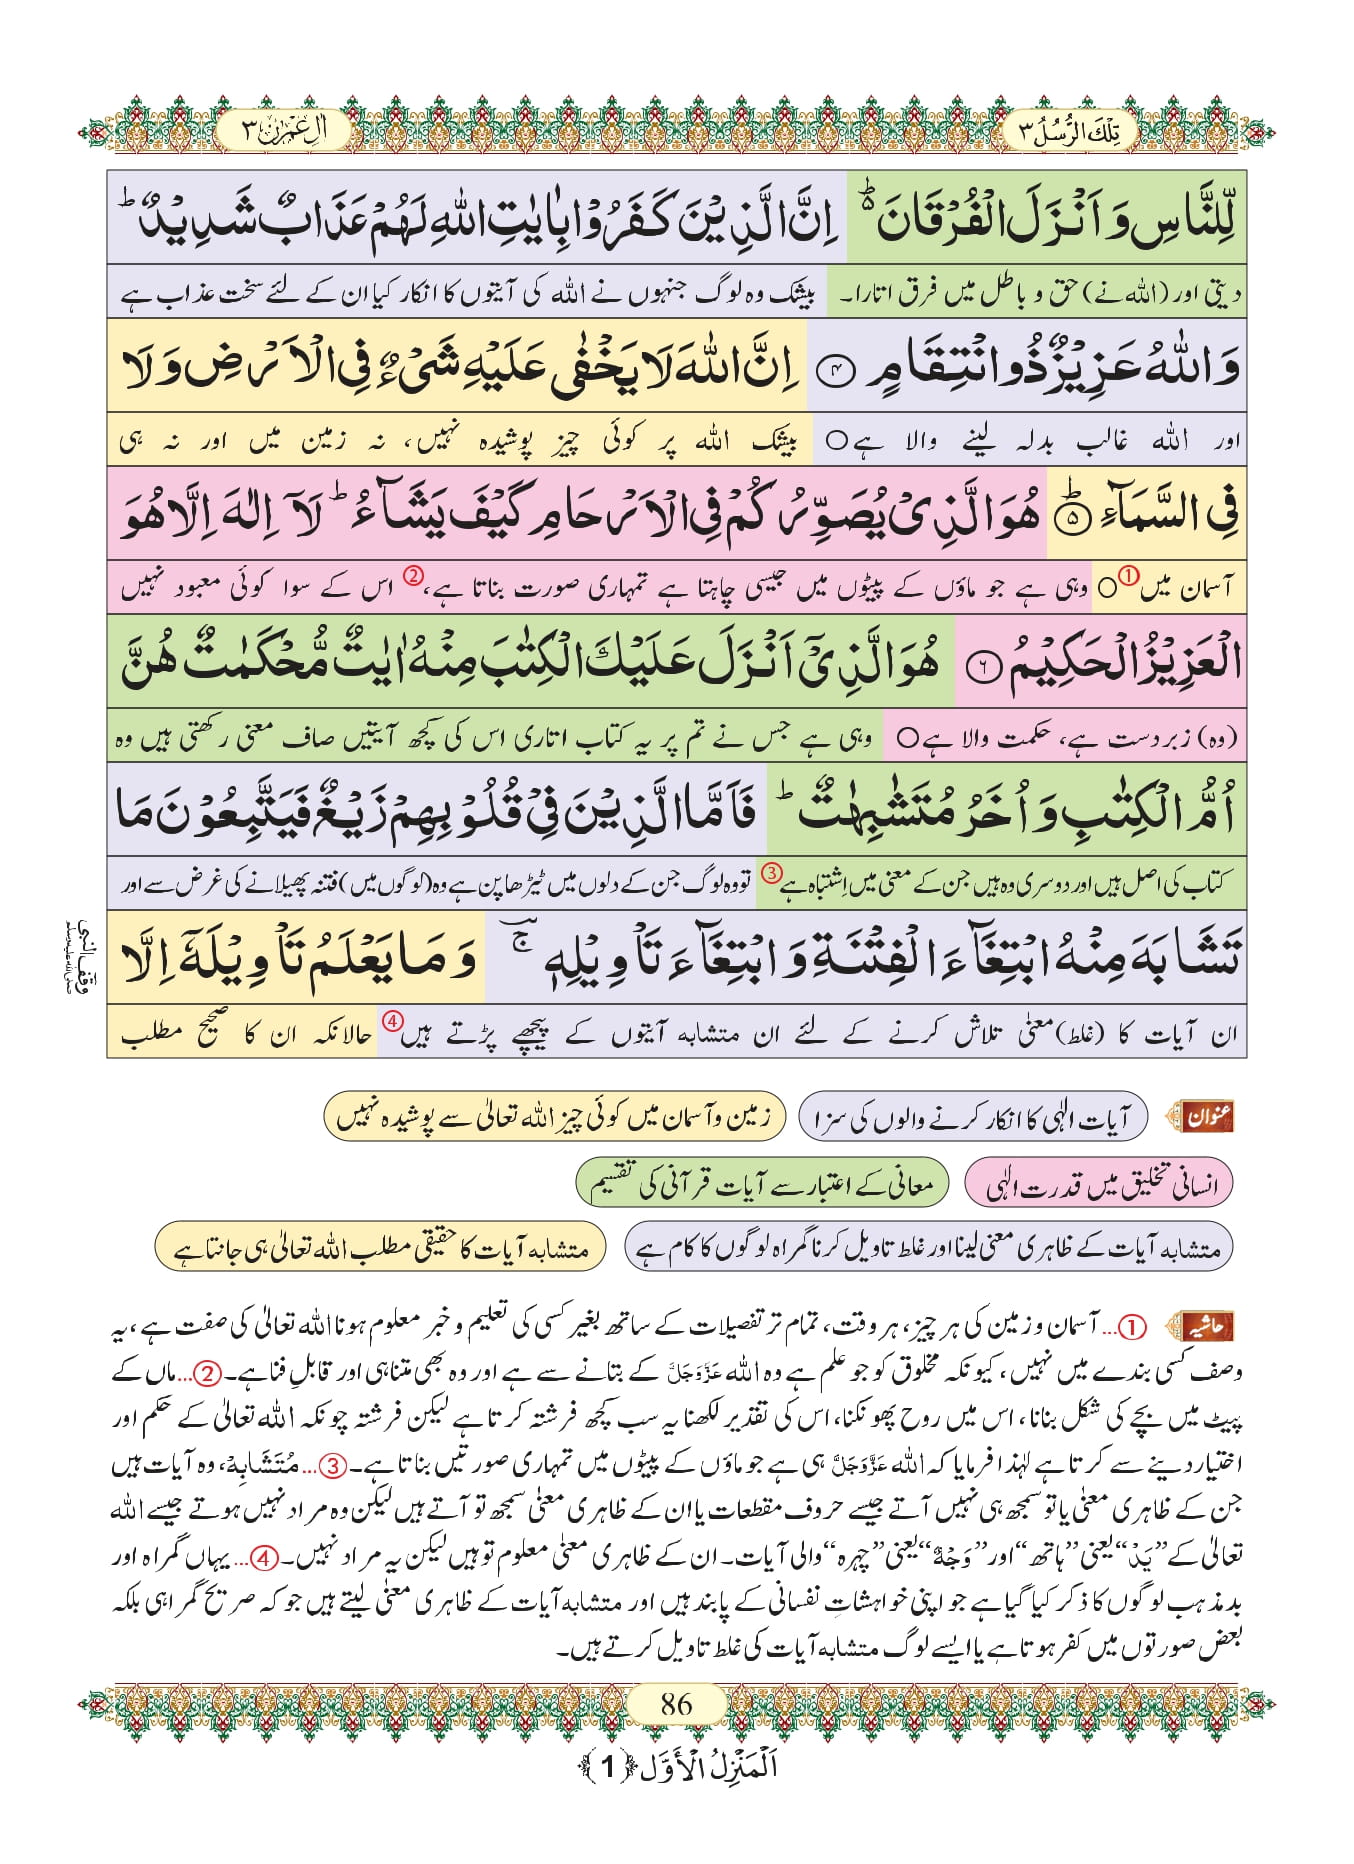 تِلْكَ الرُّسُلُ ٣
اٰلِ عِمْرٰن ٣
لِّلنَّاسِ وَ اَنْزَلَ الْفُرْقَانَ ؕ۬ اِنَّ الَّذِیْنَ كَفَرُوْا بِاٰیٰتِ اللّٰهِ لَهُمْ عَذَابٌ شَدِیْدٌ ؕ
دیتی اور (اللہ نے) حق و باطل میں فرق اتارا۔ بیشک وہ لوگ جنہوں نے اللہ کی آیتوں کا انکار کیا ان کے لئے سخت عذاب ہے
وَ اللّٰهُ عَزِیْزٌ ذُو انْتِقَامٍ ﴿۴﴾ اِنَّ اللّٰهَ لَا یَخْفٰى عَلَیْهِ شَیْءٌ فِی الْاَرْضِ وَ لَا
اور اللہ غالب بدلہ لینے والا ہے○ بیشک اللہ پر کوئی چیز پوشیدہ نہیں، نہ زمین میں اور نہ ہی
فِی السَّمَآءِ ؕ﴿۵﴾ هُوَ الَّذِیْ یُصَوِّرُكُمْ فِی الْاَرْحَامِ كَیْفَ یَشَآءُ ؕ لَاۤ اِلٰهَ اِلَّا هُوَ
آسمان میں①○ وہی ہے جو ماؤں کے پیٹوں میں جیسی چاہتا ہے تمہاری صورت بناتا ہے،② اس کے سوا کوئی معبود نہیں
الْعَزِیْزُ الْحَكِیْمُ ﴿۶﴾ هُوَ الَّذِیْۤ اَنْزَلَ عَلَیْكَ الْكِتٰبَ مِنْهُ اٰیٰتٌ مُّحْكَمٰتٌ هُنَّ
(وہ) زبردست ہے، حکمت والا ہے○ وہی ہے جس نے تم پر یہ کتاب اتاری اس کی کچھ آیتیں صاف معنی رکھتی ہیں وہ
اُمُّ الْكِتٰبِ وَ اُخَرُ مُتَشٰبِهٰتٌ ؕ فَاَمَّا الَّذِیْنَ فِیْ قُلُوْبِهِمْ زَیْغٌ فَیَتَّبِعُوْنَ مَا
کتاب کی اصل ہیں اور دوسری وہ ہیں جن کے معنی میں اِشتباہ ہے③ تو وہ لوگ جن کے دلوں میں ٹیڑھا پن ہے وہ (لوگوں میں) فتنہ پھیلانے کی غرض سے اور
تَشَابَهَ مِنْهُ ابْتِغَآءَ الْفِتْنَةِ وَ ابْتِغَآءَ تَاْوِیْلِهٖ ۚ وَ مَا یَعْلَمُ تَاْوِیْلَهٗۤ اِلَّا
وقف النبی صلی اللہ علیہ وسلم
ان آیات کا (غلط) معنیٰ تلاش کرنے کے لئے ان متشابہ آیتوں کے پیچھے پڑتے ہیں④ حالانکہ ان کا صحیح مطلب
عنوان آیات الٰہی کا انکار کرنے والوں کی سزا زمین و آسمان میں کوئی چیز اللہ تعالیٰ سے پوشیدہ نہیں
انسانی تخلیق میں قدرت الٰہی معانی کے اعتبار سے آیات قرآنی کی تقسیم
متشابہ آیات کے ظاہری معنی لینا اور غلط تاویل کرنا گمراہ لوگوں کا کام ہے متشابہ آیات کا حقیقی مطلب اللہ تعالیٰ ہی جانتا ہے
حاشیہ ①... آسمان و زمین کی ہر چیز، ہر وقت، تمام تر تفصیلات کے ساتھ بغیر کسی کی تعلیم و خبر معلوم ہونا اللہ تعالیٰ کی صفت ہے، یہ
وصف کسی بندے میں نہیں، کیونکہ مخلوق کو جو علم ہے وہ اللہ عَزَّوَجَلَّ کے بتانے سے ہے اور وہ بھی متناہی اور قابلِ فنا ہے۔②...ماں کے
پیٹ میں بچے کی شکل بنانا، اس میں روح پھونکنا، اس کی تقدیر لکھنا یہ سب کچھ فرشتہ کرتا ہے لیکن فرشتہ چونکہ اللہ تعالیٰ کے حکم اور
اختیار دینے سے کرتا ہے لہٰذا فرمایا کہ اللہ عَزَّوَجَلَّ ہی ہے جو ماؤں کے پیٹوں میں تمہاری صورتیں بناتا ہے۔③... مُتَشَابِہْ، وہ آیات ہیں
جن کے ظاہری معنٰی یا تو سمجھ ہی نہیں آتے جیسے حروف مقطعات یا ان کے ظاہری معنیٰ سمجھ تو آتے ہیں لیکن وہ مراد نہیں ہوتے جیسے اللہ
تعالیٰ کے”یَدْ“ یعنی ”ہاتھ“ اور ”وَجْہٌ“ یعنی ”چہرہ“ والی آیات۔ ان کے ظاہری معنیٰ معلوم تو ہیں لیکن یہ مراد نہیں۔④... یہاں گمراہ اور
بدمذہب لوگوں کا ذکر کیا گیا ہے جو اپنی خواہشاتِ نفسانی کے پابند ہیں اور متشابہ آیات کے ظاہری معنیٰ لیتے ہیں جو کہ صریح گمراہی بلکہ
بعض صورتوں میں کفر ہوتا ہے یا ایسے لوگ متشابہ آیات کی غلط تاویل کرتے ہیں۔
86
اَلْمَنْزِلُ الْاَوَّل ﴿1﴾